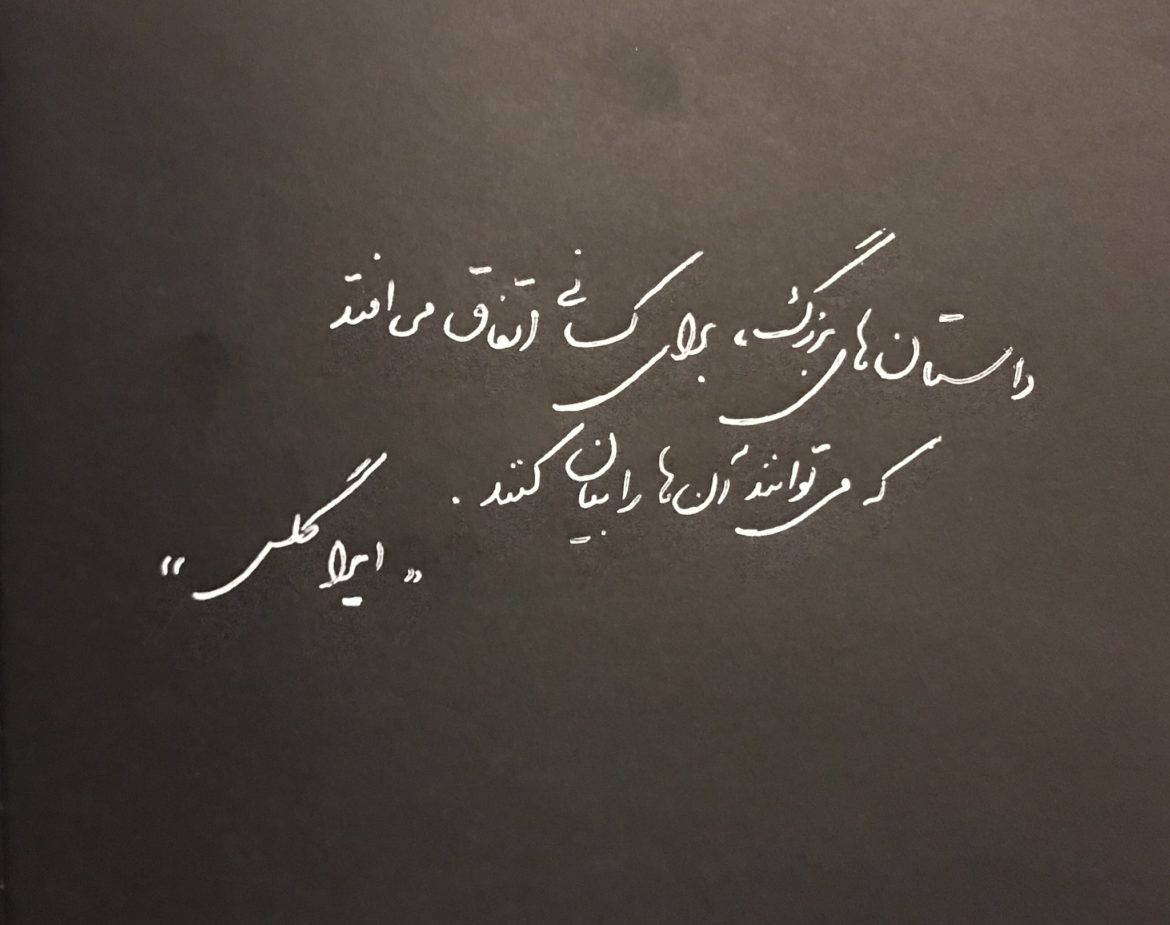 داستان‌های بزرگ، برای کسانی اتفاق می‌افتد
که می‌توانند آن‌ها را بیان کنند.
«ایرا گلس»